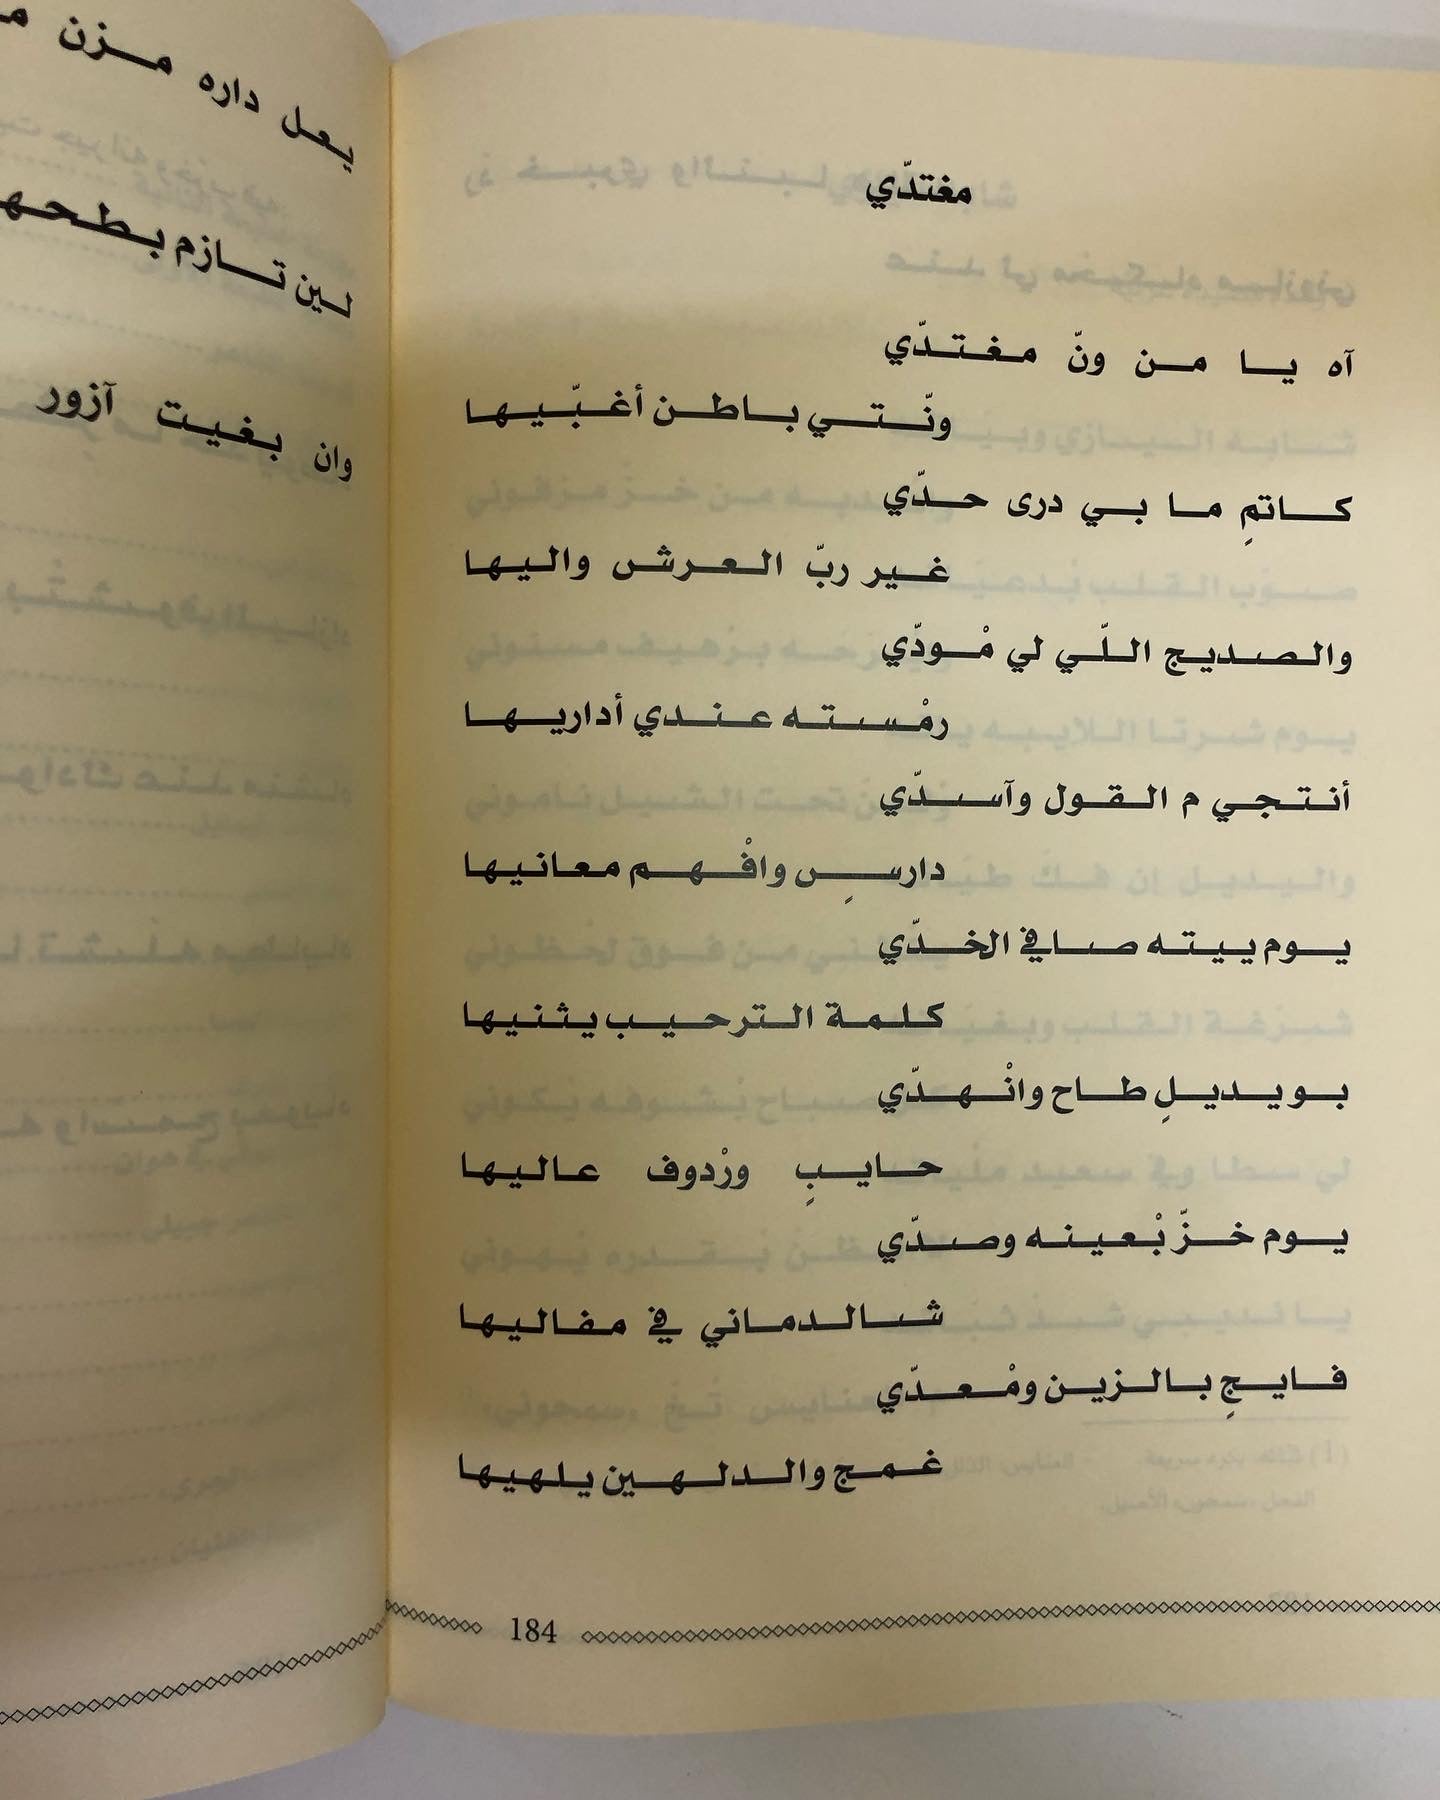 مغتدّي
آه يا من ونّ مغتدّي
ونّتي باطن أغبّيها
كاتمِ ما بي درى حدّي
غير ربّ العرش واليها
والصديج اللّي لي مْودّي
رمْسته عندي أداريها
أنتجي م القول وآسدّي
دارسٍ وافْهم معانيها
يوم ييته صافي الخدّي
كلمة الترحيب يثنيها
بو يديلِ طاح وانْهدّي
حايبٍ ورْدوف عاليها
يوم خزّ بْعينه وصدّي
شالدماني في مفاليها
فايجٍ بالزين ومْعدّي
غمج والدلهين يلهيها
184
يعل داره مزن
لين تازم بطحها
وان بغيت آزور